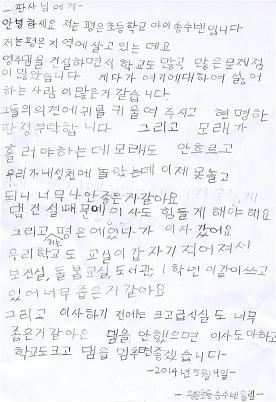 -판사님에게-
안녕하세요 저는 평은초등학교 아이 송수빈입니다
저는 평은 지역에 살고 있는 데요
영주댐을 건설하면서 학교도 많고 많은 문제점
이 많았습니다 게다가 여기에대하여 싫어
하는 사람이 많은거 같습니다.
그들의 의견에 귀를 귀울여 주시고 현명한
판정부탁합니다 그리고 모래가
흘러야하는데 모래도 안흐르고
우리가 내성천에 놀았는데 이제 못놀고
되니 너무나 안좋은거 같아요
댐건설때문에 이사도 힘들게 해야해요
그리고 평은에 있다가 이사갔어요
우리학교도 저는 교실이 갑자기 적어져서
보건실, 돌봄교실, 도서관, 1학년 이같이쓰고
있어 너무 좁은거 같아요
그리고 이사하기 전에는 크고급식실도 너무
좁은거 같아요 댐을 안했으면 이사도아하고
학교도크고 댐을 멈추면좋겠습니다-
-2014년 5월 9일-
-평은초등 송수빈올림-